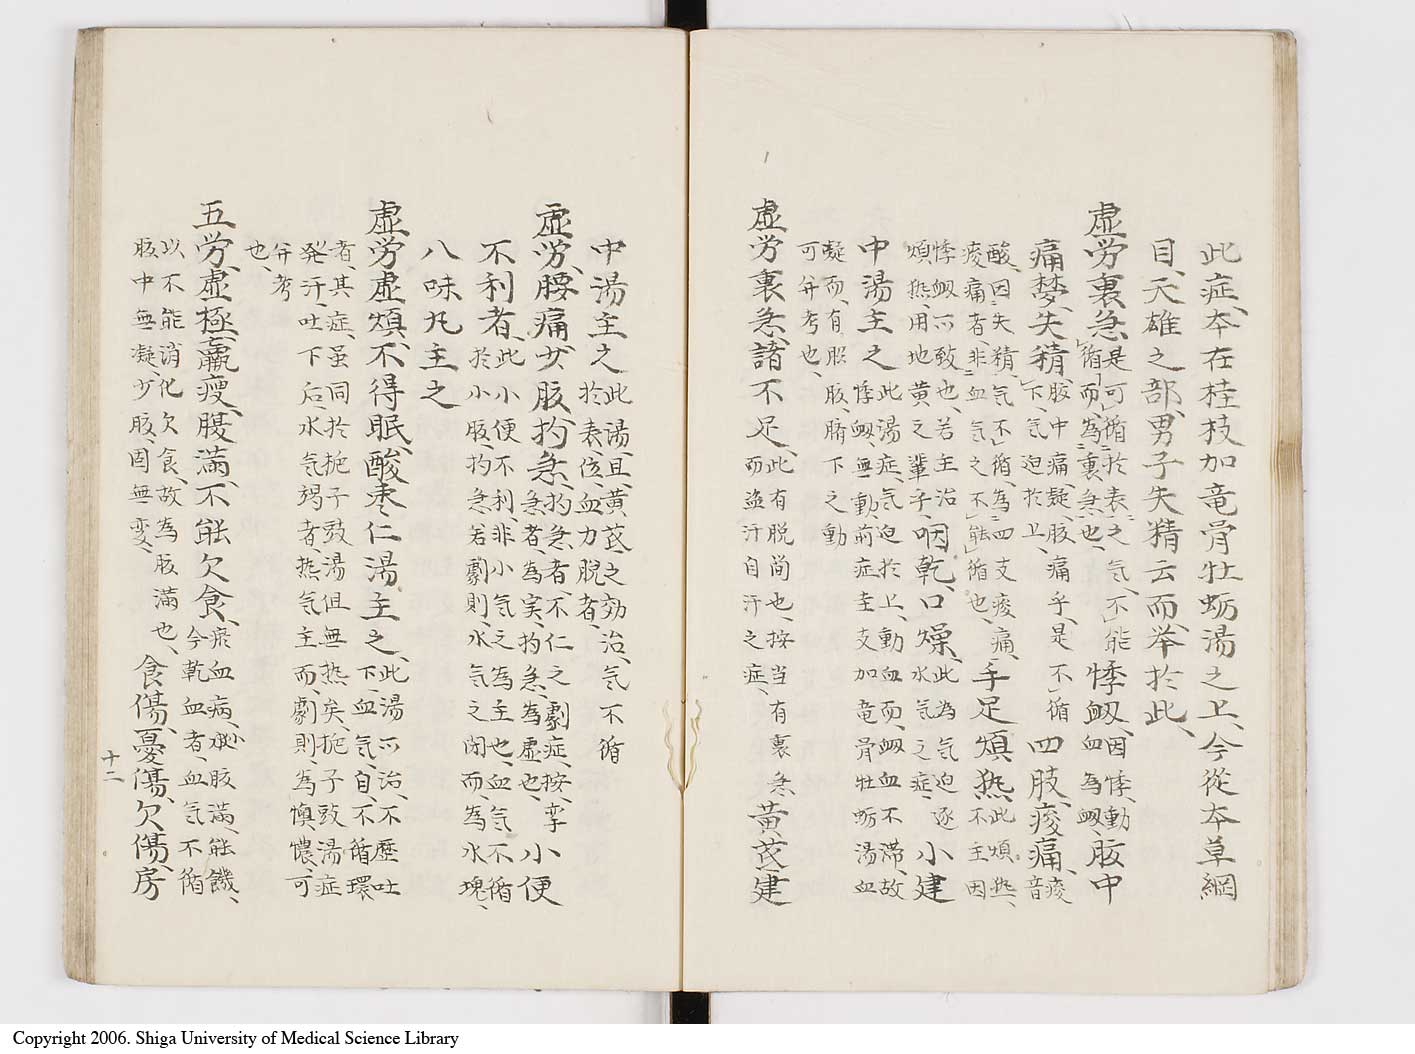 此症、本在桂枝加竜骨牡蛎湯之上、今從本草綱
目、天雄之部、男子失精云而、举於此、
虚労裏急、是可循於表之気、不能
循而、為裏急也、悸衂、因悸、動
血為衂、腹中
痛、夢失精、腹中痛、疑、腹痛乎、是不循
下、気迫於上、四肢痠痛、痠音
酸、因失精、気不循、為四支痠痛、
痠痛者、非血気之不能循也、手足煩热、此煩热、
不主因
悸衂所致也、若主治
煩热、用地黄之輩乎、咽乾、口燥、此為気迫逐
水気之症、小建
中湯主之、此湯症、気迫於上、動血而、衂血不滞、故
悸衂、無動、前症圭支加竜骨牡蛎湯、血
凝而、有臍腹、臍下之動
可并考也、
虚労裏急、諸不足、此有脱简也、按当有裏急
而盗汗自汗之症、黄芪建
中湯主之、此湯、且黄芪之効、治気不循
於表位、血力脱者、
虚労、腰痛、少腹拘急、拘急者、不仁之劇症、按、挛
急者、為実、拘急、為虚也、小便
不利者、此小便不利、非小気之為主也、血気不循
於小腹、拘急若劇則、水気之闭而、為水塊、
八味丸主之
虚労虚煩、不得眠、酸枣仁湯主之、此湯所治、不歴吐
下、血気自不循環
者、其症、虽同於梔子豉湯但無热矣、梔子豉湯症
発汗吐下后、水気竭者、热気主而、劇則、為懊憹、可
并考
也、
五労、虚極、羸瘦、腹満、不能欠食、瘀血病、必小腹満、能饑、
今乾血者、血気不循
以不能消化欠食、故為腹満也、
腹中無凝、少腹、固無変、食傷、憂傷、欠傷、房
十二
Copyright 2006. Shiga University of Medical Science Library